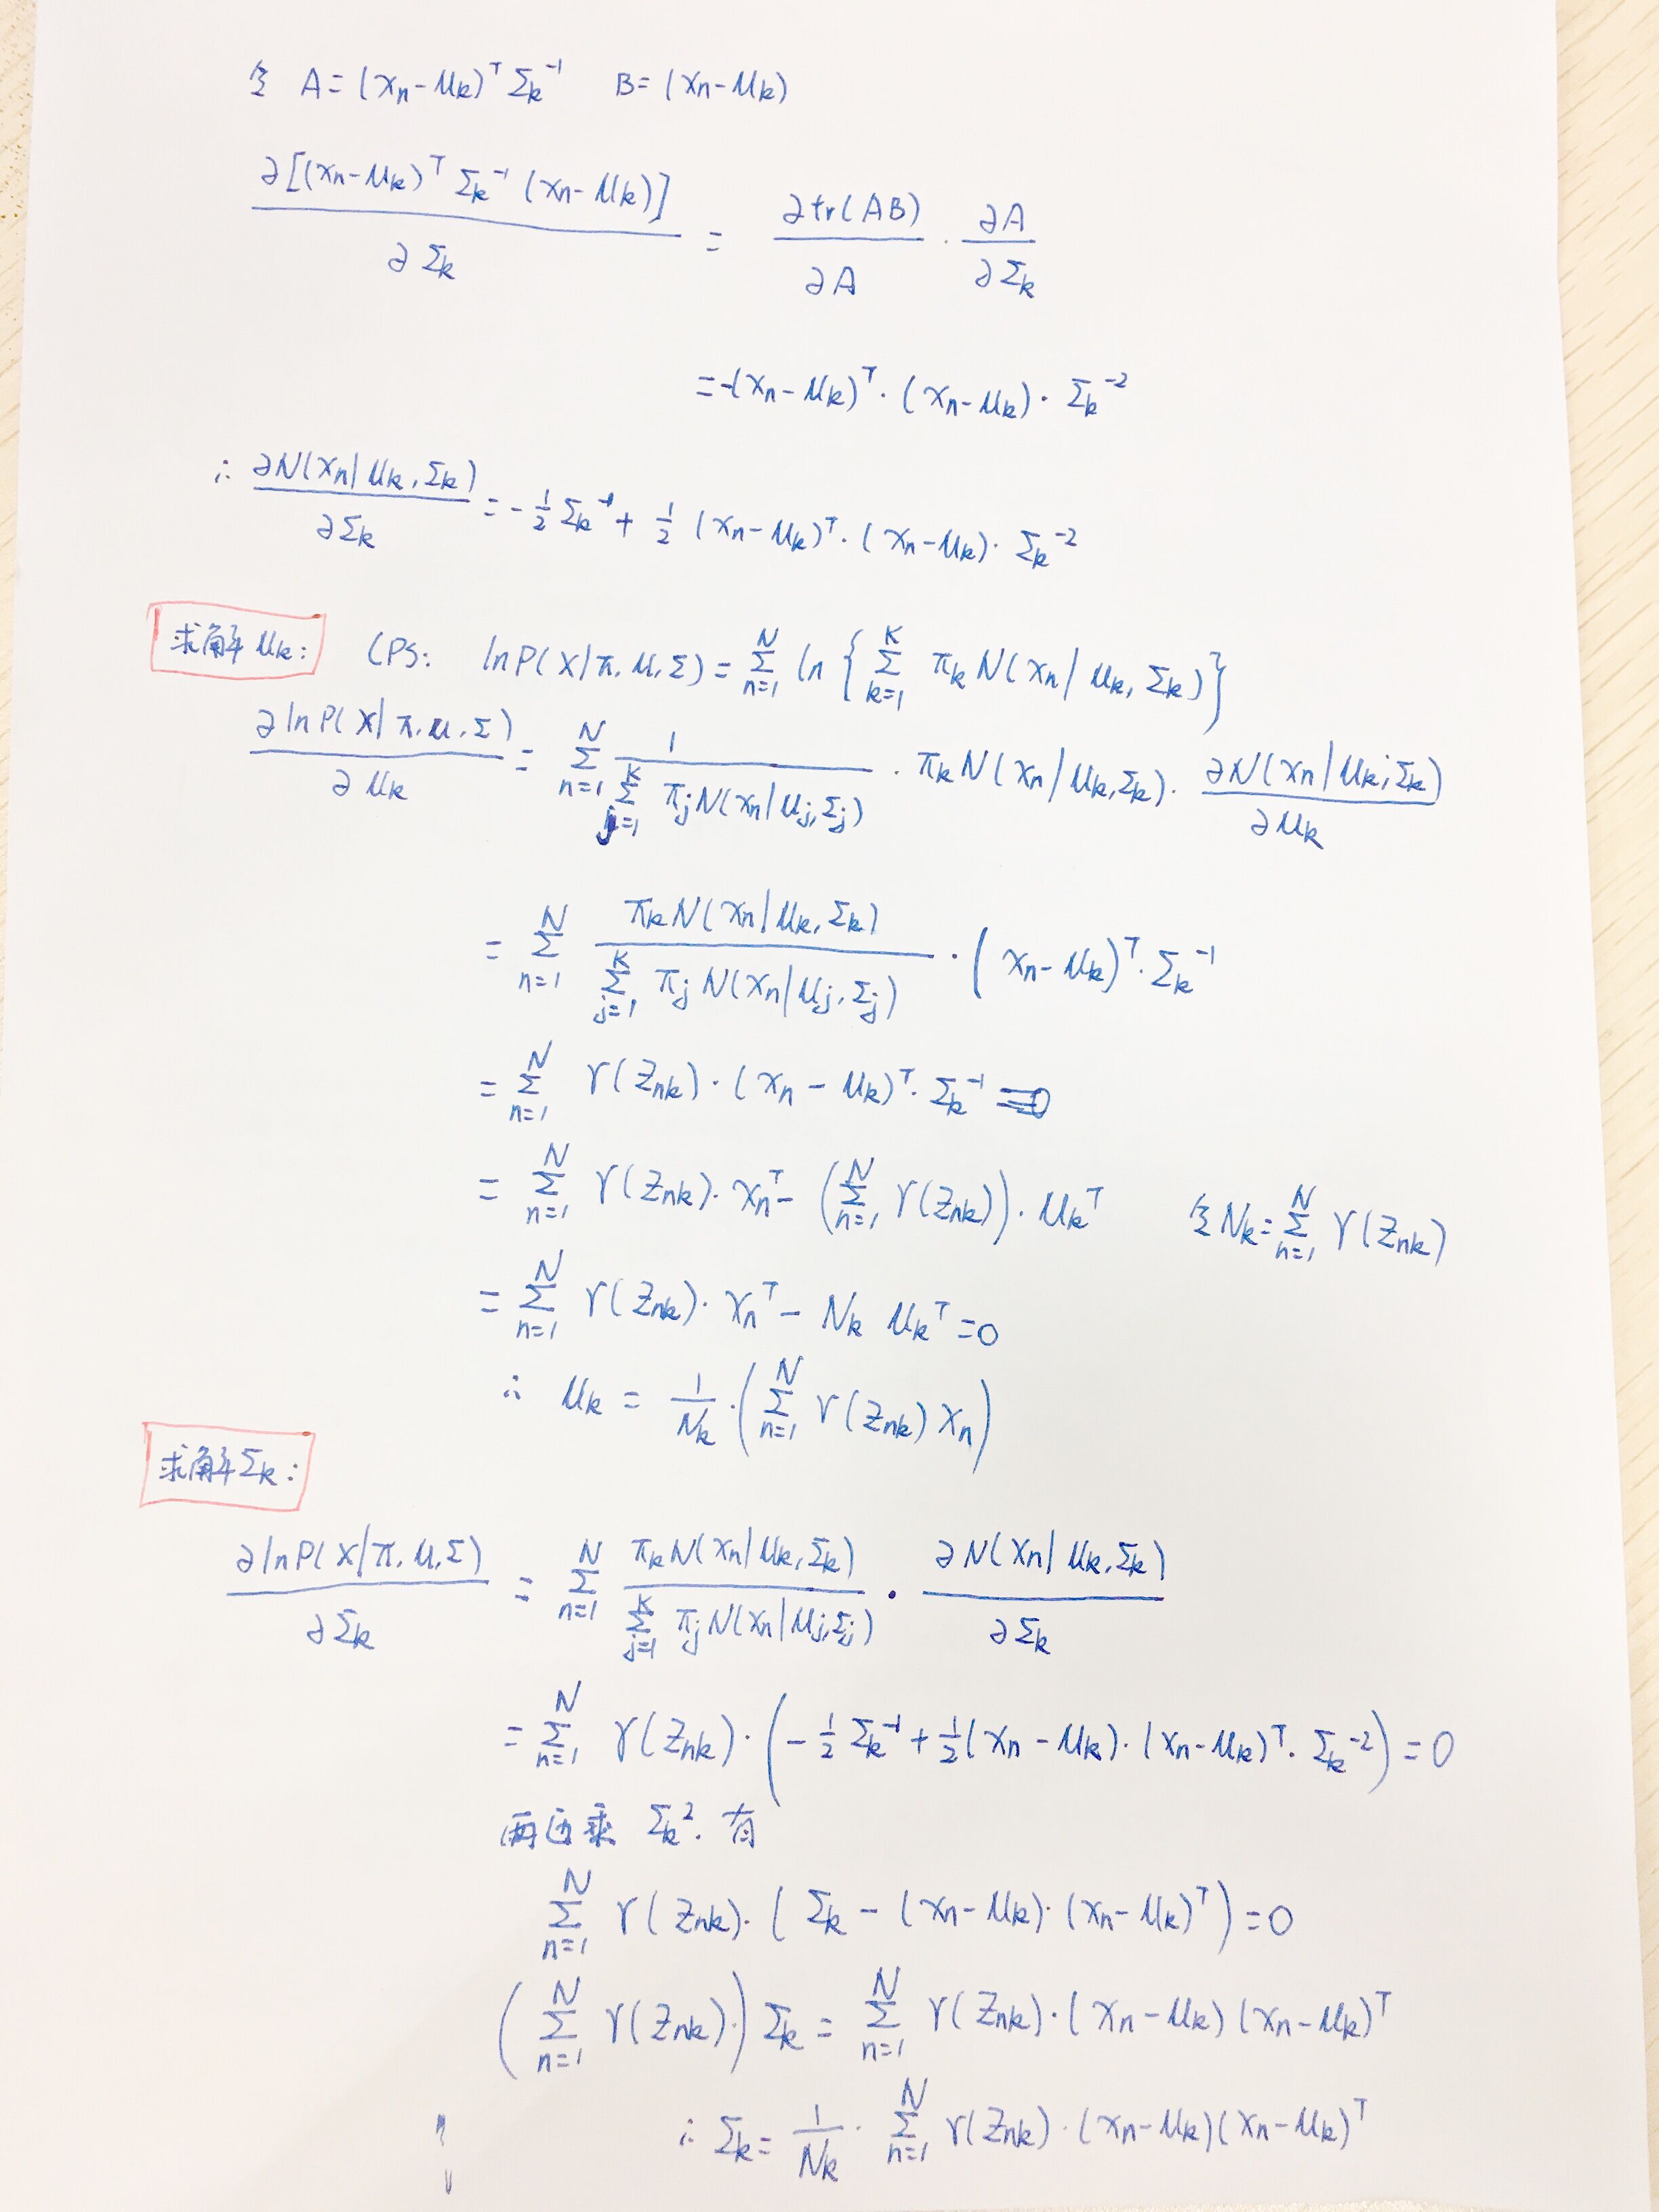 令 A = (xₙ-μₖ)ᵀ Σₖ⁻¹  B = (xₙ-μₖ)
∂[(xₙ-μₖ)ᵀ Σₖ⁻¹ (xₙ-μₖ)] / ∂Σₖ = ∂tr(AB)/∂A · ∂A/∂Σₖ
= -(xₙ-μₖ)ᵀ·(xₙ-μₖ)·Σₖ⁻²
∴ ∂N(xₙ|μₖ,Σₖ)/∂Σₖ = -½ Σₖ⁻¹ + ½ (xₙ-μₖ)ᵀ·(xₙ-μₖ)·Σₖ⁻²
求解μₖ: (PS: lnP(X|π,μ,Σ) = Σₙ₌₁ᴺ ln{Σₖ₌₁ᴷ πₖN(xₙ|μₖ,Σₖ)}
∂lnP(X|π,μ,Σ)/∂μₖ = Σₙ₌₁ᴺ 1/(Σⱼ₌₁ᴷ πⱼN(xₙ|μⱼ,Σⱼ)) · πₖN(xₙ|μₖ,Σₖ)· ∂N(xₙ|μₖ,Σₖ)/∂μₖ
= Σₙ₌₁ᴺ πₖN(xₙ|μₖ,Σₖ)/(Σⱼ₌₁ᴷ πⱼN(xₙ|μⱼ,Σⱼ)) · (xₙ-μₖ)ᵀ·Σₖ⁻¹
= Σₙ₌₁ᴺ γ(zₙₖ)·(xₙ-μₖ)ᵀ·Σₖ⁻¹
= Σₙ₌₁ᴺ γ(zₙₖ)·xₙᵀ - (Σₙ₌₁ᴺ γ(zₙₖ))·μₖᵀ  令Nₖ = Σₙ₌₁ᴺ γ(zₙₖ)
= Σₙ₌₁ᴺ γ(zₙₖ)·xₙᵀ - Nₖ μₖᵀ = 0
∴ μₖ = 1/Nₖ·(Σₙ₌₁ᴺ γ(zₙₖ)xₙ)
求解Σₖ:
∂lnP(X|π,μ,Σ)/∂Σₖ = Σₙ₌₁ᴺ πₖN(xₙ|μₖ,Σₖ)/(Σⱼ₌₁ᴷ πⱼN(xₙ|μⱼ,Σⱼ)) · ∂N(xₙ|μₖ,Σₖ)/∂Σₖ
= Σₙ₌₁ᴺ γ(zₙₖ)·(-½ Σₖ⁻¹ + ½(xₙ-μₖ)·(xₙ-μₖ)ᵀ·Σₖ⁻²) = 0
两边乘 Σₖ². 有
Σₙ₌₁ᴺ γ(zₙₖ)·(Σₖ - (xₙ-μₖ)·(xₙ-μₖ)ᵀ) = 0
(Σₙ₌₁ᴺ γ(zₙₖ)·)Σₖ = Σₙ₌₁ᴺ γ(zₙₖ)·(xₙ-μₖ)(xₙ-μₖ)ᵀ
∴ Σₖ = 1/Nₖ · Σₙ₌₁ᴺ γ(zₙₖ)·(xₙ-μₖ)(xₙ-μₖ)ᵀ